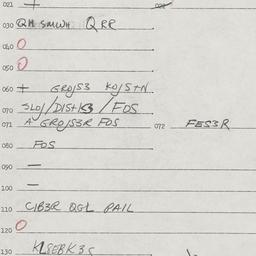 021 +
030 QM SMWH QRR
040 O
050 O
060 + GROJS3 KOJS+N
070 SLOJ/DIST/FOS
071 A GROJS3R FOS 072 FES3R
080 FOS
090 —
100 —
110 CIB3R QGL PAIL
120 O
130 KLSEBK3S